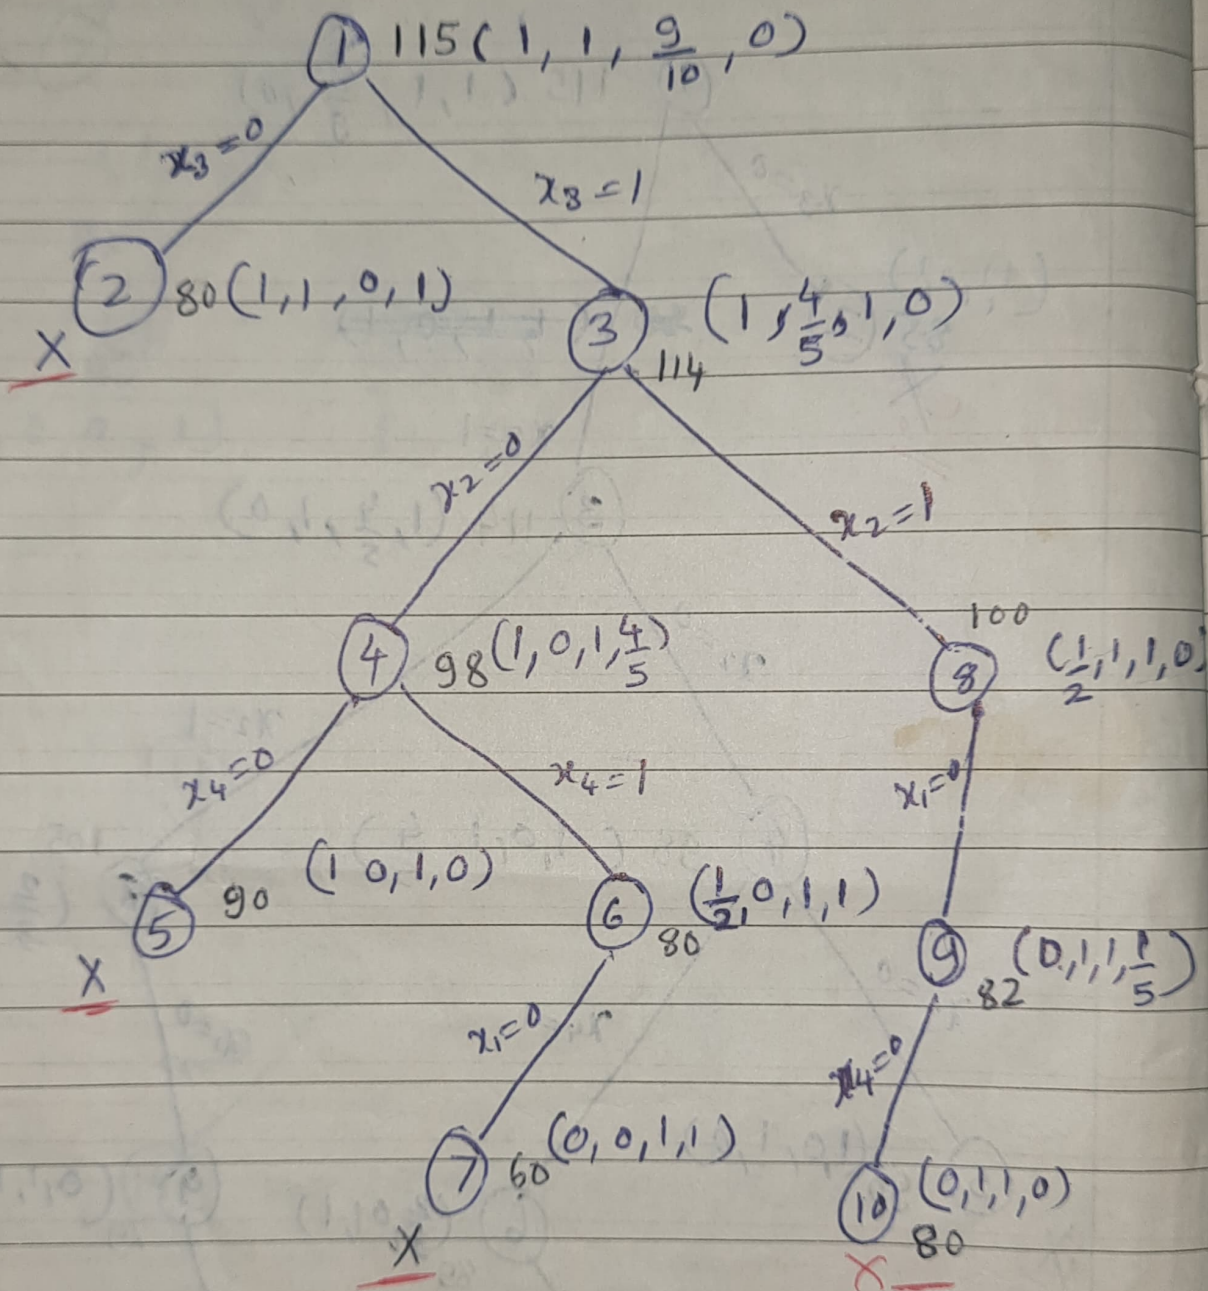 1 115(1, 1, 9/10, 0)
x3=0
x3=1
2 80(1,1,0,1)
X
3 (1,4/5,1,0)
114
x2=0
x2=1
4 98(1,0,1,4/5)
100
8 (1/2,1,1,0)
x4=0
x4=1
x1=0
5 90 (1 0,1,0)
X
6 80 (1/2,0,1,1)
9 82 (0,1,1,1/5)
x1=0
x4=0
7 60 (0,0,1,1)
X
10 (0,1,1,0)
80
X